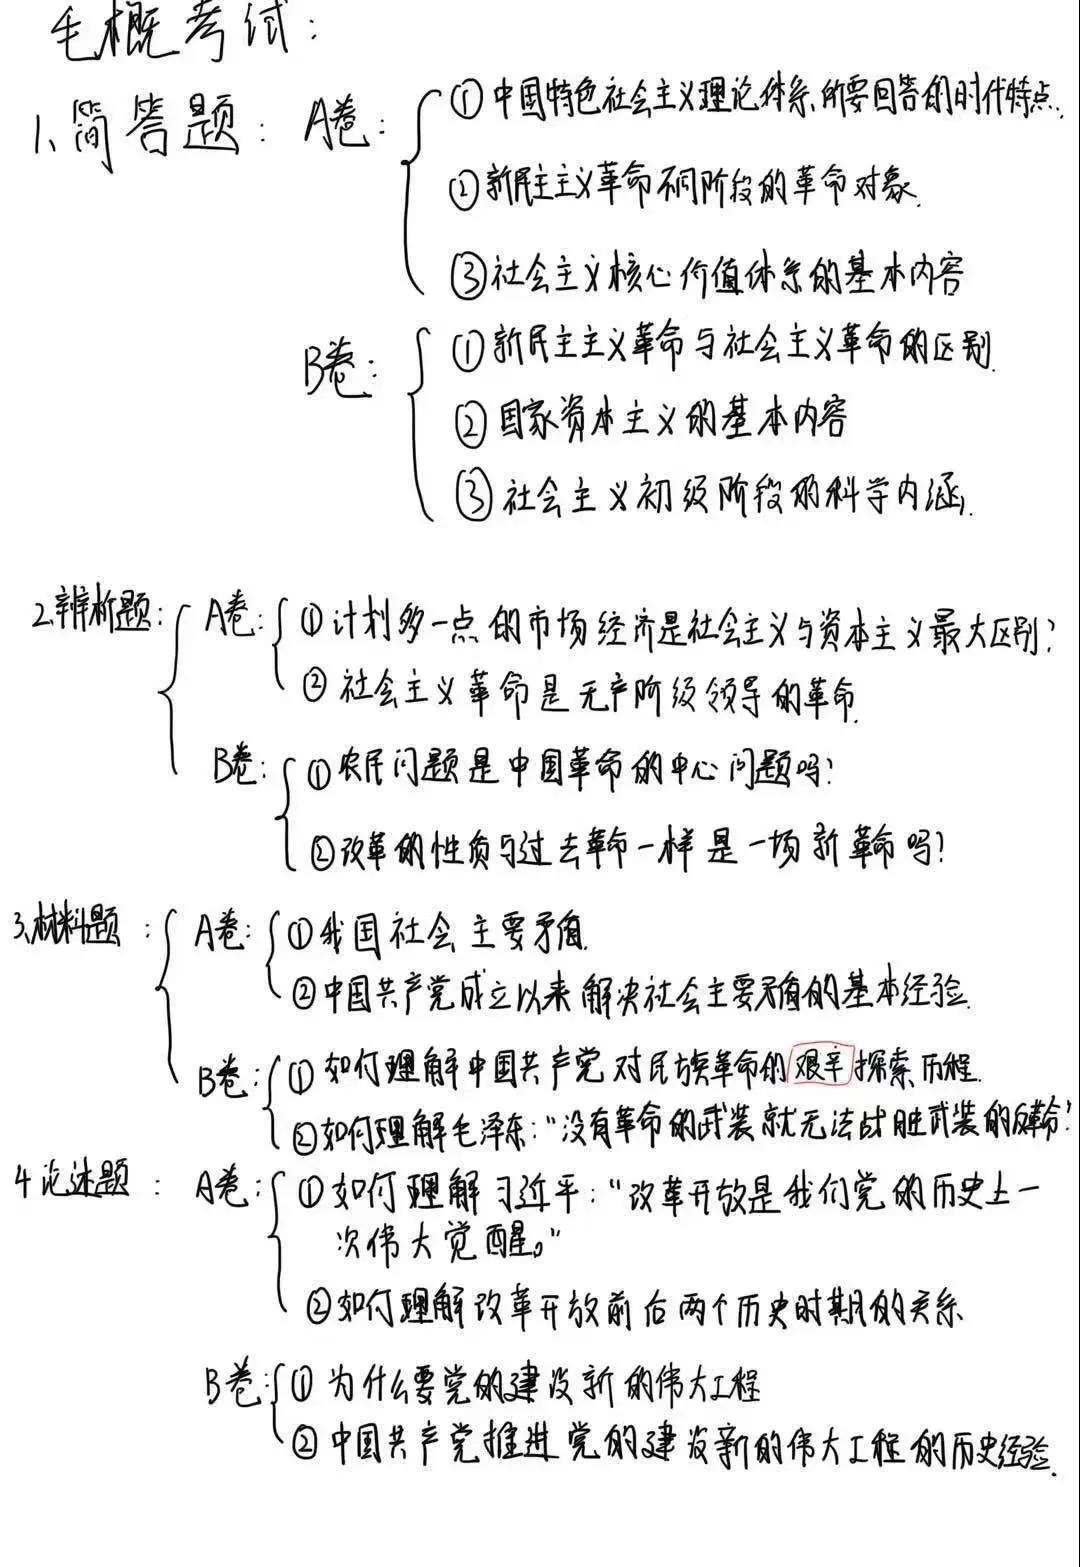 毛概考试:
1、简答题: A卷: ①中国特色社会主义理论体系所要回答的时代特点.
②新民主主义革命不同阶段的革命对象.
③社会主义核心价值体系的基本内容
B卷: ①新民主主义革命与社会主义革命的区别.
②国家资本主义的基本内容
③社会主义初级阶段的科学内涵.
2.辨析题: A卷: ①计划多一点的市场经济是社会主义与资本主义最大区别?
②社会主义革命是无产阶级领导的革命.
B卷: ①农民问题是中国革命的中心问题吗?
②改革的性质与过去革命一样是一场新革命吗?
3.材料题: A卷: ①我国社会主要矛盾.
②中国共产党成立以来解决社会主要矛盾的基本经验.
B卷: ①如何理解中国共产党对民族革命的艰辛探索历程.
②如何理解毛泽东:“没有革命的武装就无法战胜武装的反革命?
4论述题: A卷: ①如何理解习近平:“改革开放是我们党的历史上一
次伟大觉醒。”
②如何理解改革开放前后两个历史时期的关系
B卷: ①为什么要党的建设新的伟大工程
②中国共产党推进党的建设新的伟大工程的历史经验.